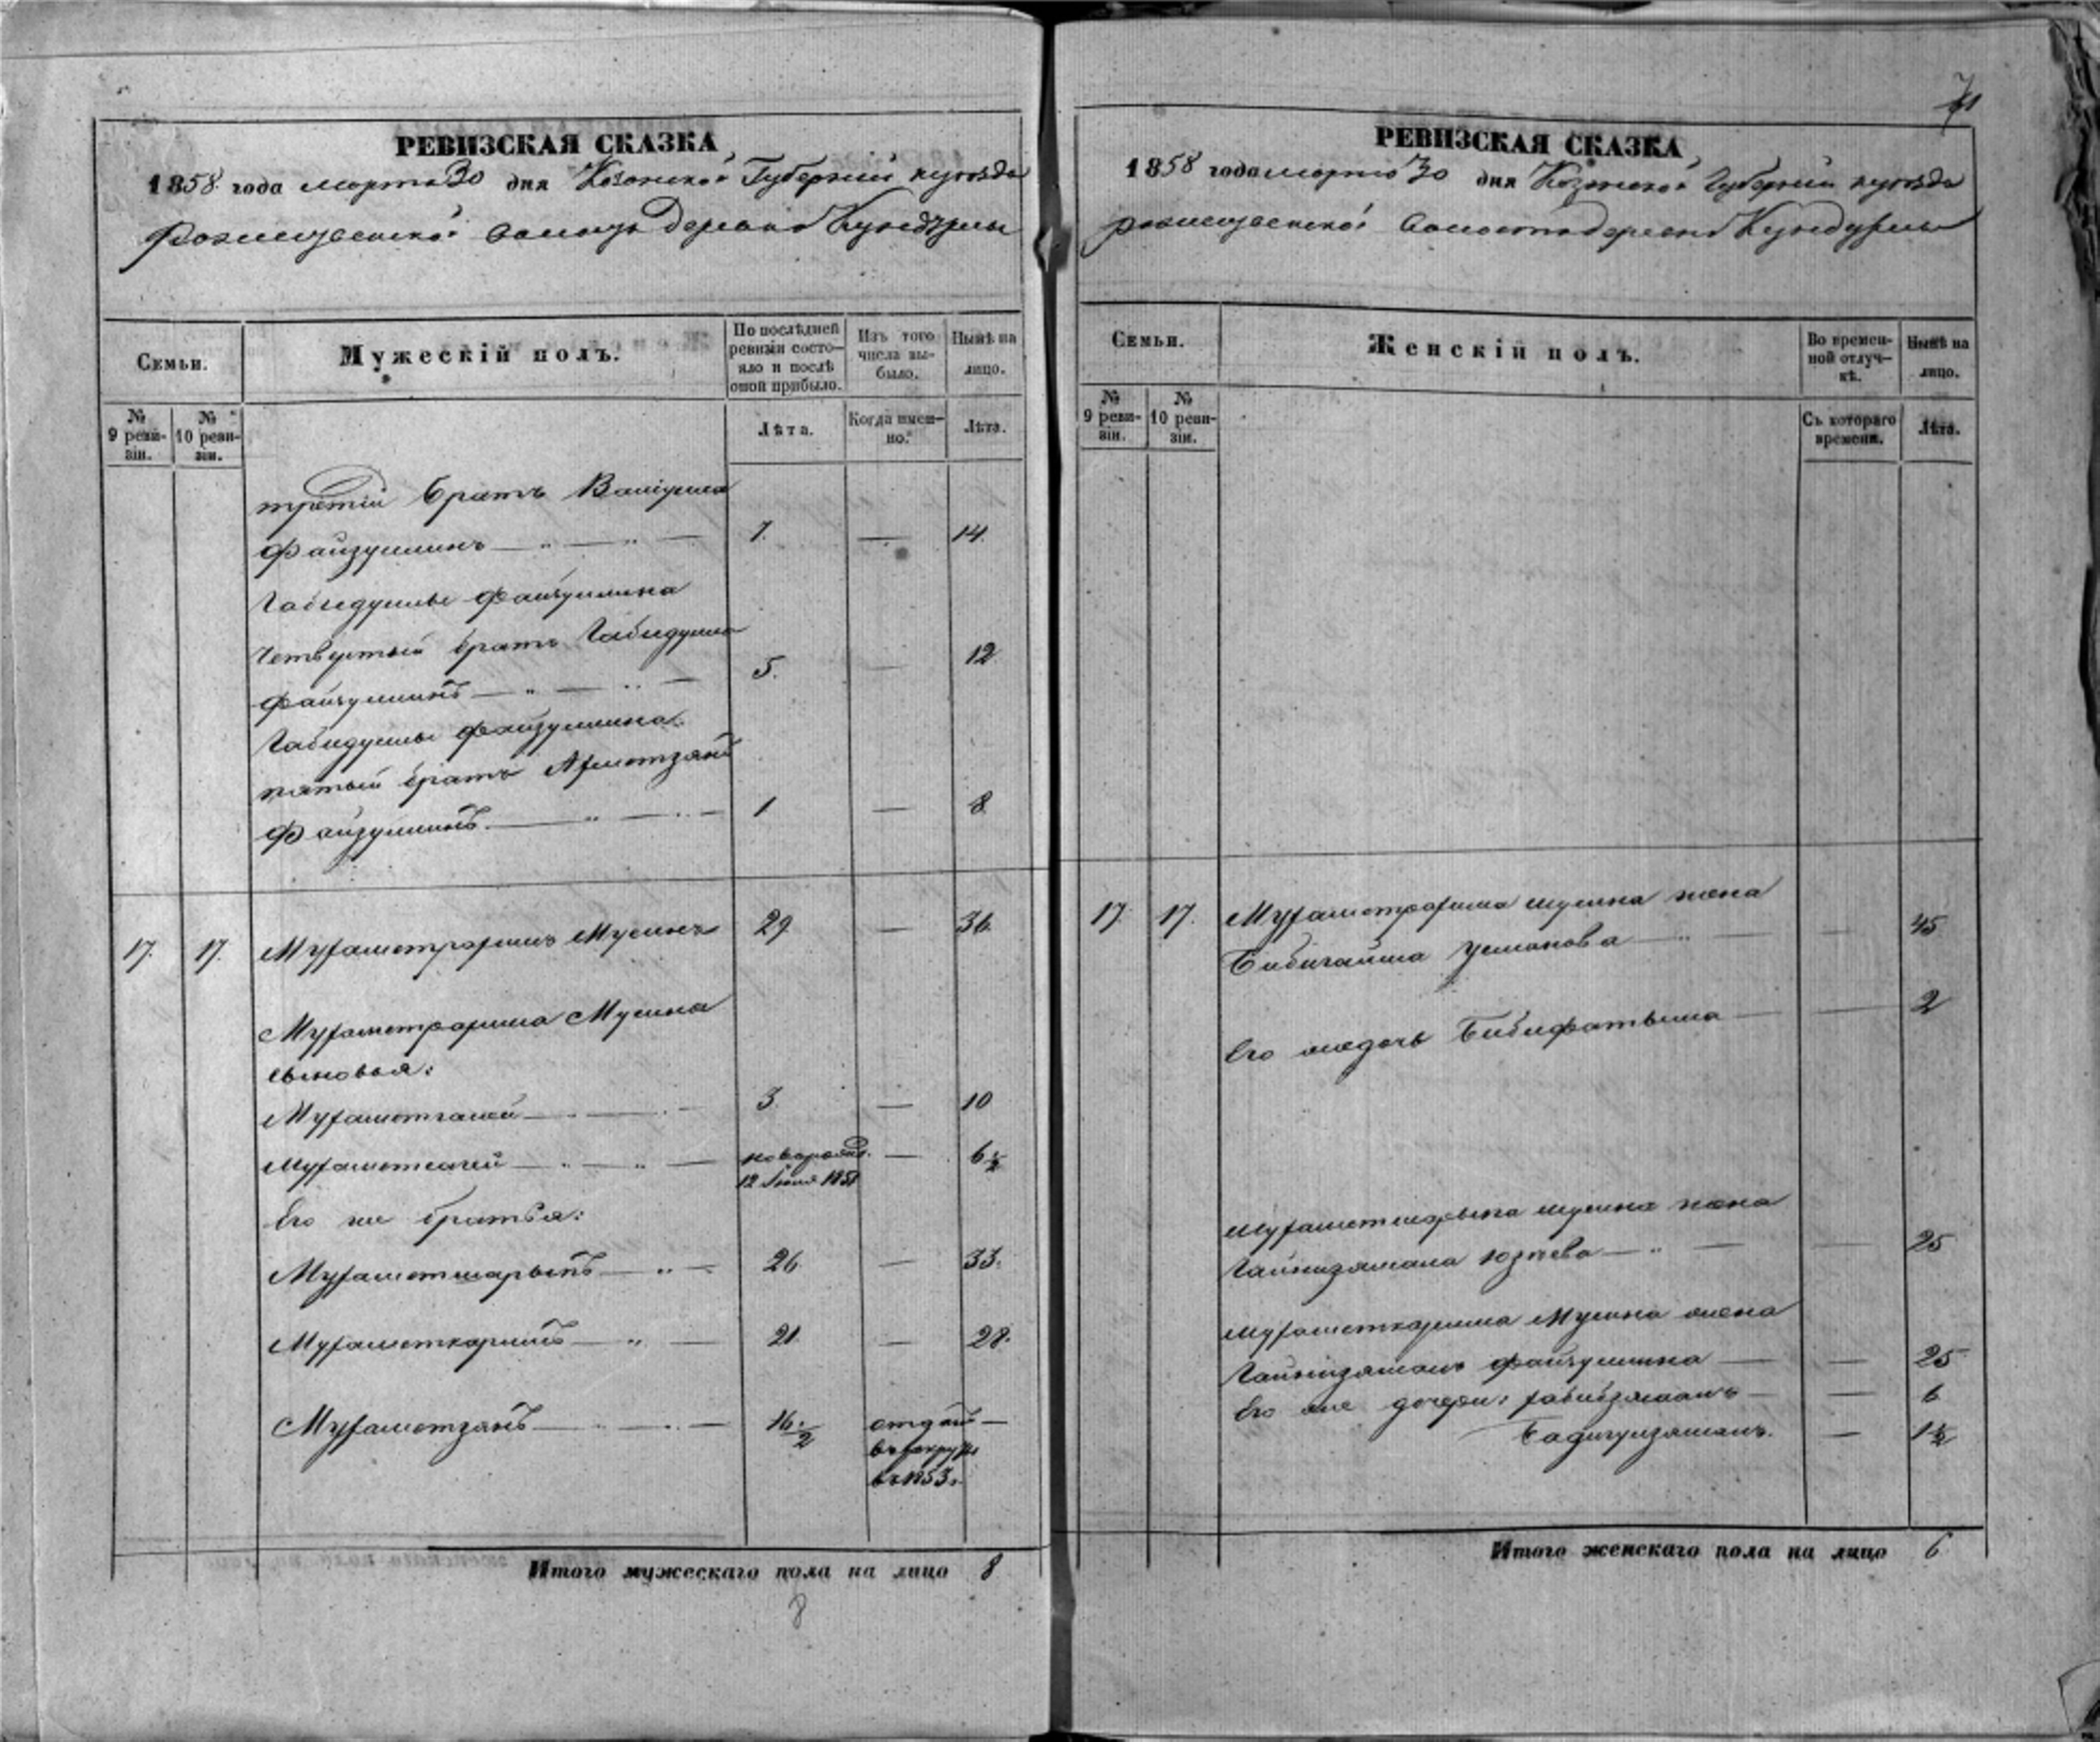 РЕВИЗСКАЯ СКАЗКА
1858 года марта 30 дня Казанской Губернии и уезда
волости Деревни Кундурлы
Семьи.
Мужескій полъ.
По послѣдней ревизіи состояло и послѣ оной прибыло.
Изъ того числа выбыло.
Нынѣ на лицо.
№ 9 ревизіи.
№ 10 ревизіи.
Лѣта.
Когда именно.
Лѣта.
третій братъ Валіулла
Файзуллинъ — „ — „ — 7. — 14.
Габидуллы Файзуллина
четвертый братъ Габидулла
Файзуллинъ — „ — „ — 5. — 12.
Габидуллы Файзуллина
пятый братъ Ахметзянъ
Файзуллинъ — „ — „ — 1 — 8
17. 17. Мухаметрахимъ Мусинъ 29 — 36.
Мухаметрахима Мусина
сыновья:
Мухаметгалей 3. — 10
новорожд. — 6½
12 1851
Его же братья:
Мухаметшарыпъ — „ — 26 — 33.
Мухаметкаримъ — „ — 21. — 28.
Мухаметзянъ — 16½ отданъ —
въ рекруты
въ 1853.
Итого мужескаго пола на лицо 8
8
71
РЕВИЗСКАЯ СКАЗКА
1858 года марта 30 дня Казанской Губернии и уезда
волости деревни Кундурлы
Семьи.
Женскій полъ.
Во временной отлучкѣ.
Нынѣ на лицо.
№ 9 ревизіи.
№ 10 ревизіи.
Съ котораго времени.
Лѣта.
17. 17. Мухаметрахима Мусина жена
Бибигайша Усманова — „ — — 45
Его же дочь Бибифатыма — — 2
Мухаметшарыпа Мусина жена
Гайнизямала — „ — — 25
Мухаметкарима Мусина жена
Файзуллина — — 25
Его же дочери: — — 6
— 1½
Итого женскаго пола на лицо 6